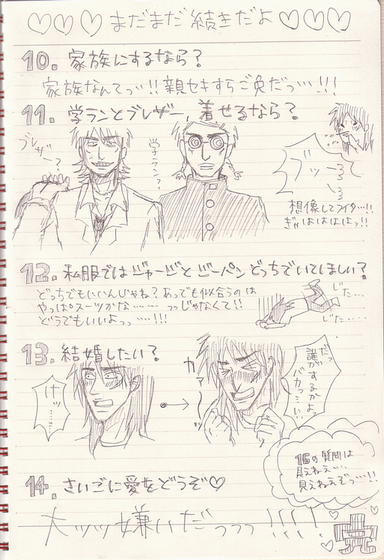 ♡♡♡ まだまだ続きだよ ♡♡♡
10. 家族にするなら?
家族なんてっ…!!親セキすらご免だっ…!!!
11. 学ランとブレザー、着せるなら?
ブレザー?
学ラン?
ブッ
想像してフイタ…!!
ぎゃはははは…っ!!
12. 私服ではジャージとジーパンどっちでいてほしい?
どっちでもいいんじゃね?あっでも似合うのは
やっぱスーツかな…… っっじゃなくて!!
どうでもいいよっ……!!!
じた…
じた…
13. 結婚したい?
けッ……
カァーッ
だ
誰がするかよ
バカっ…!!
14. さいごに愛をどうぞ♡
大ッッ嫌いだっっっ!!!
の質問は
見えねぇ…
見えねえぞっ…!!